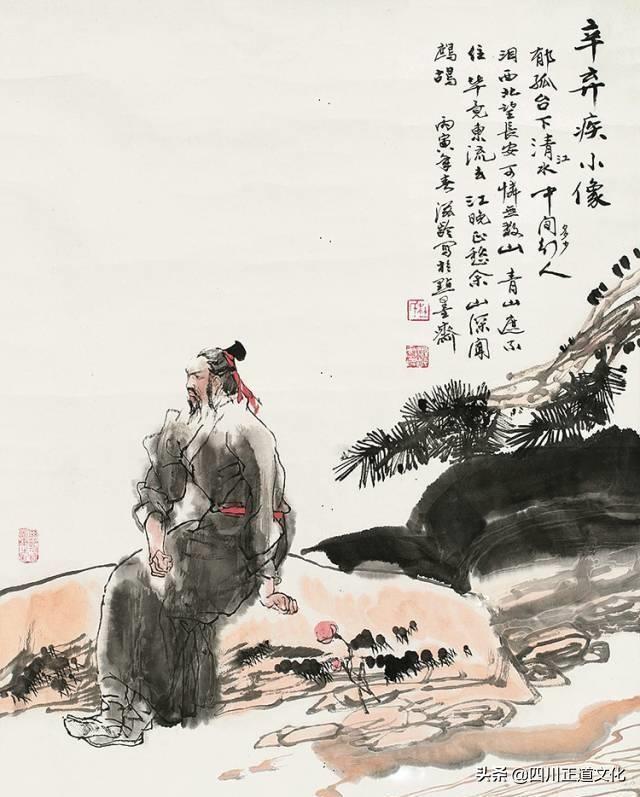 辛弃疾小像
郁孤台下清江水中间多少行人
泪西北望長安可憐无数山青山遮不
住毕竟東流去江晚正愁余山深闻
鹧鸪 丙寅年春滋龄写於點墨齋
头条 @四川正道文化